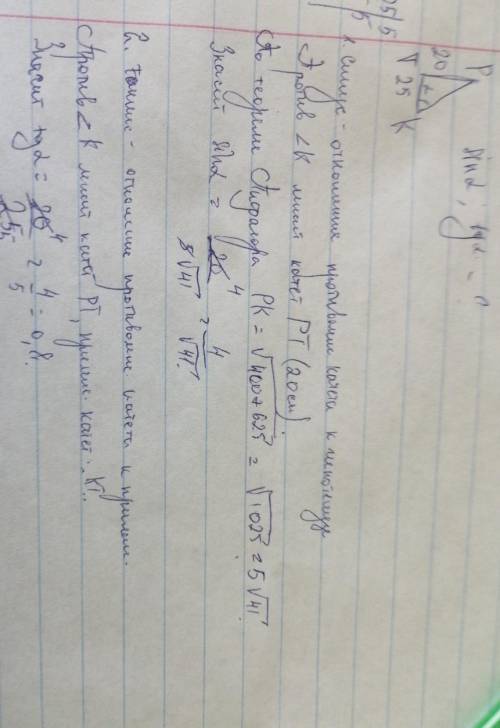 25 | 5
5
P
20
T 25 K
sinα, tgα = ?
1. Синус - отношение противолеж катета к гипотенузе
Против ∠K лежит катет PT (20 см)
По теореме Пифагора PK = √400+625 = √1025 = 5√41
Значит sinα = 20⁴/5√41 = 4/√41
2. Тангенс - отношение противолеж. катета к прилеж.
Против ∠K лежит катет PT, прилеж. катет - KT.
Значит tgα = 20⁴/25₅ = 4/5 = 0,8.